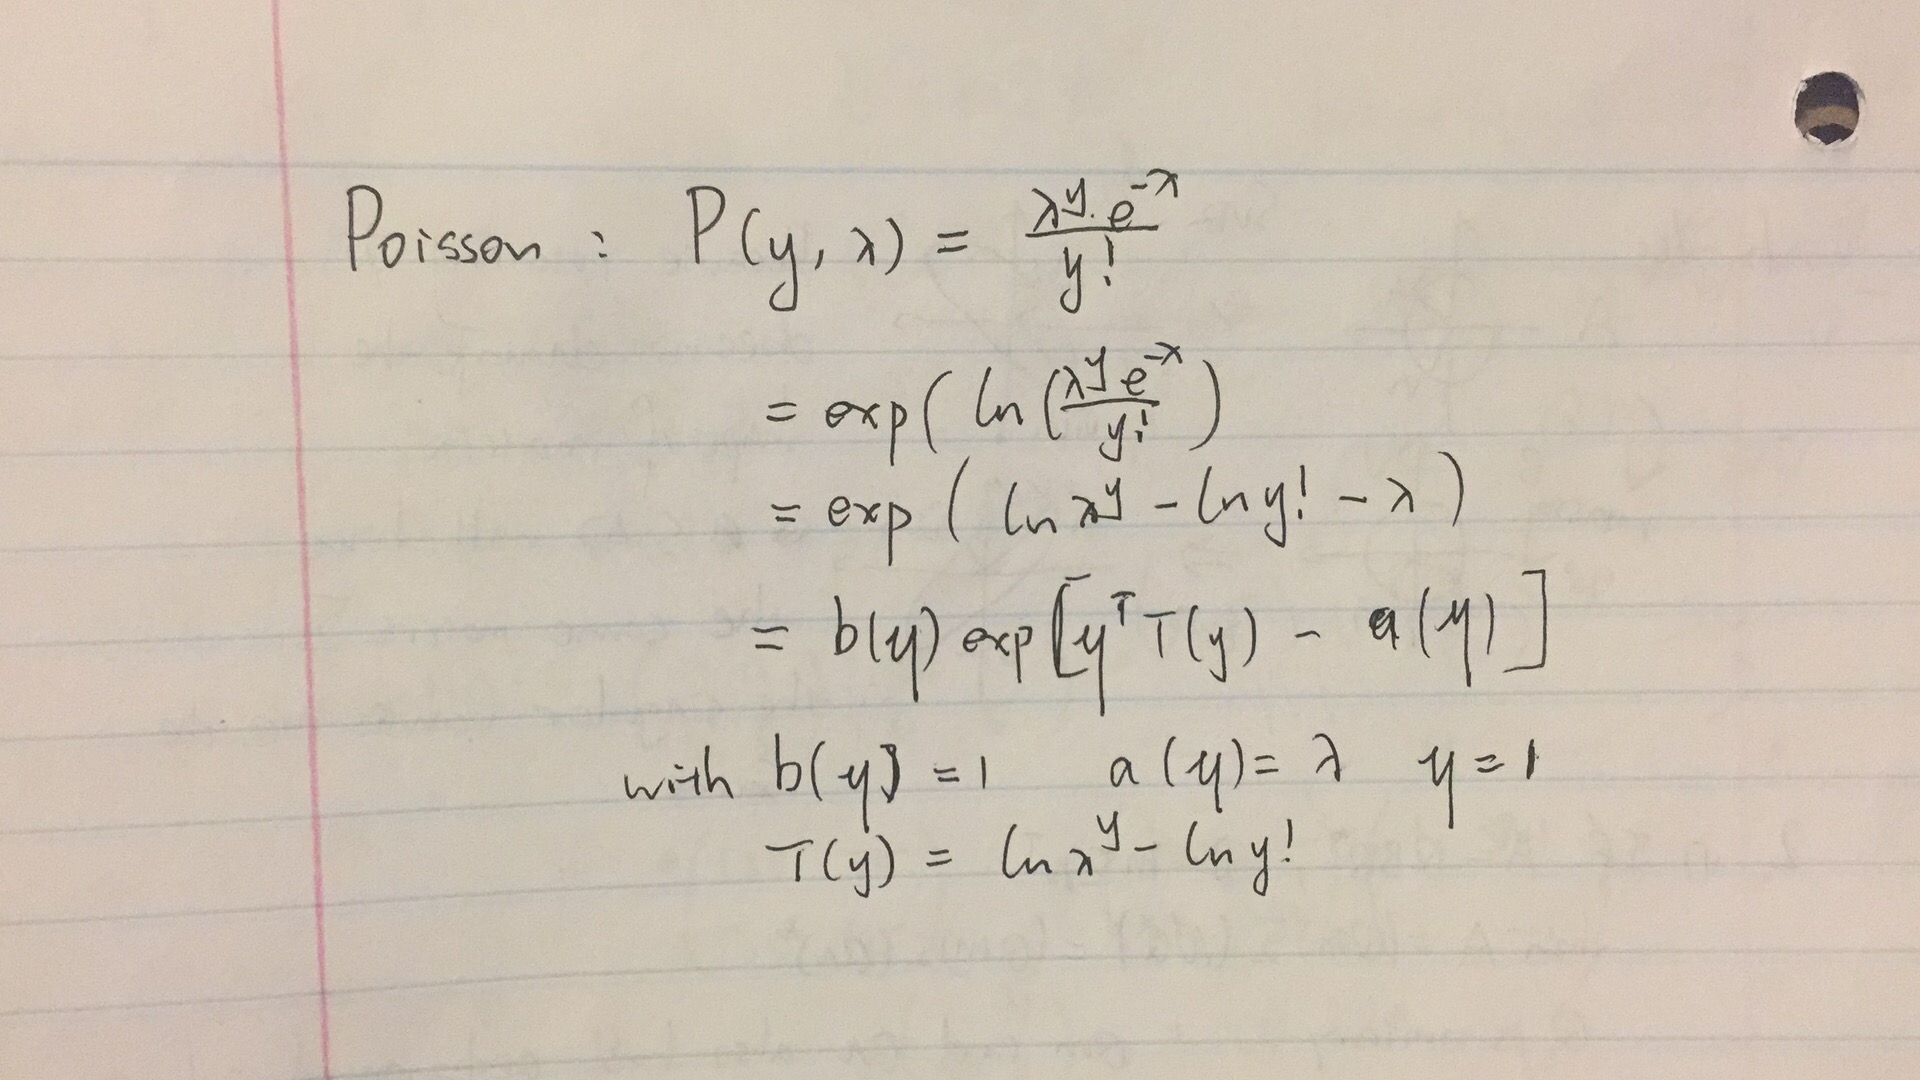 Poisson : P(y, λ) = λ^y · e^-λ / y!
= exp( ln (λ^y e^-λ / y! )
= exp ( ln λ^y - ln y! - λ )
= b(y) exp [ η^T T(y) - a(η) ]
with b(y) = 1 a(η) = λ η = 1
T(y) = ln λ^y - ln y!